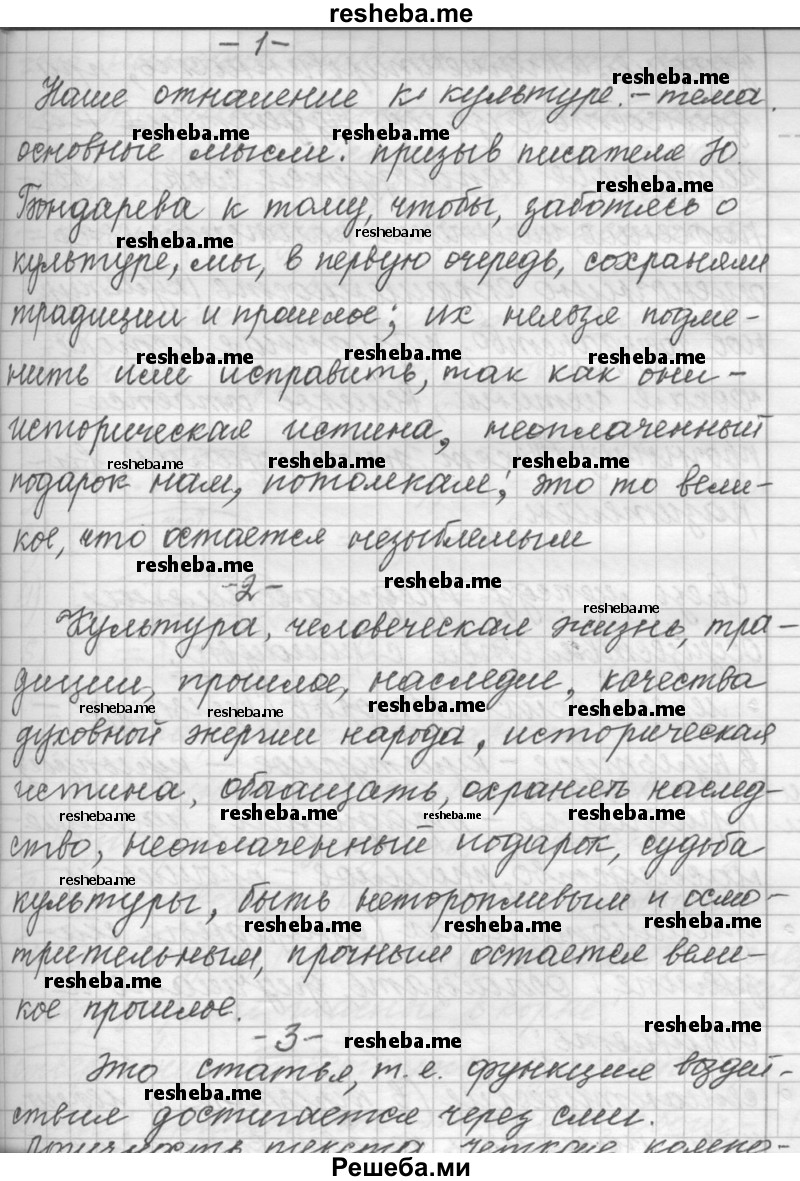 resheba.me
-1-
Наше отношение к культуре. - тема.
основные мысли: призыв писателя Ю.
Бондарева к тому, чтобы, заботясь о
культуре, мы, в первую очередь, сохраняли
традиции и прошлое; их нельзя подме-
нить или исправить, так как они -
историческая истина, неоплаченный
подарок нам, потомкам; это то вели-
кое, что остается незыблемым
-2-
Культура, человеческая жизнь, тра-
диции, прошлое, наследие, качества
духовной энергии народа, историческая
истина, обогащать, охранять наслед-
ство, неоплаченный подарок, судьба
культуры, быть неторопливым и осмо-
трительным, прочным остается вели-
кое прошлое.
-3-
Это статья, т. е. функция воздей-
ствия достигается через сми.
Логичность текста, четкое
Решеба.ми